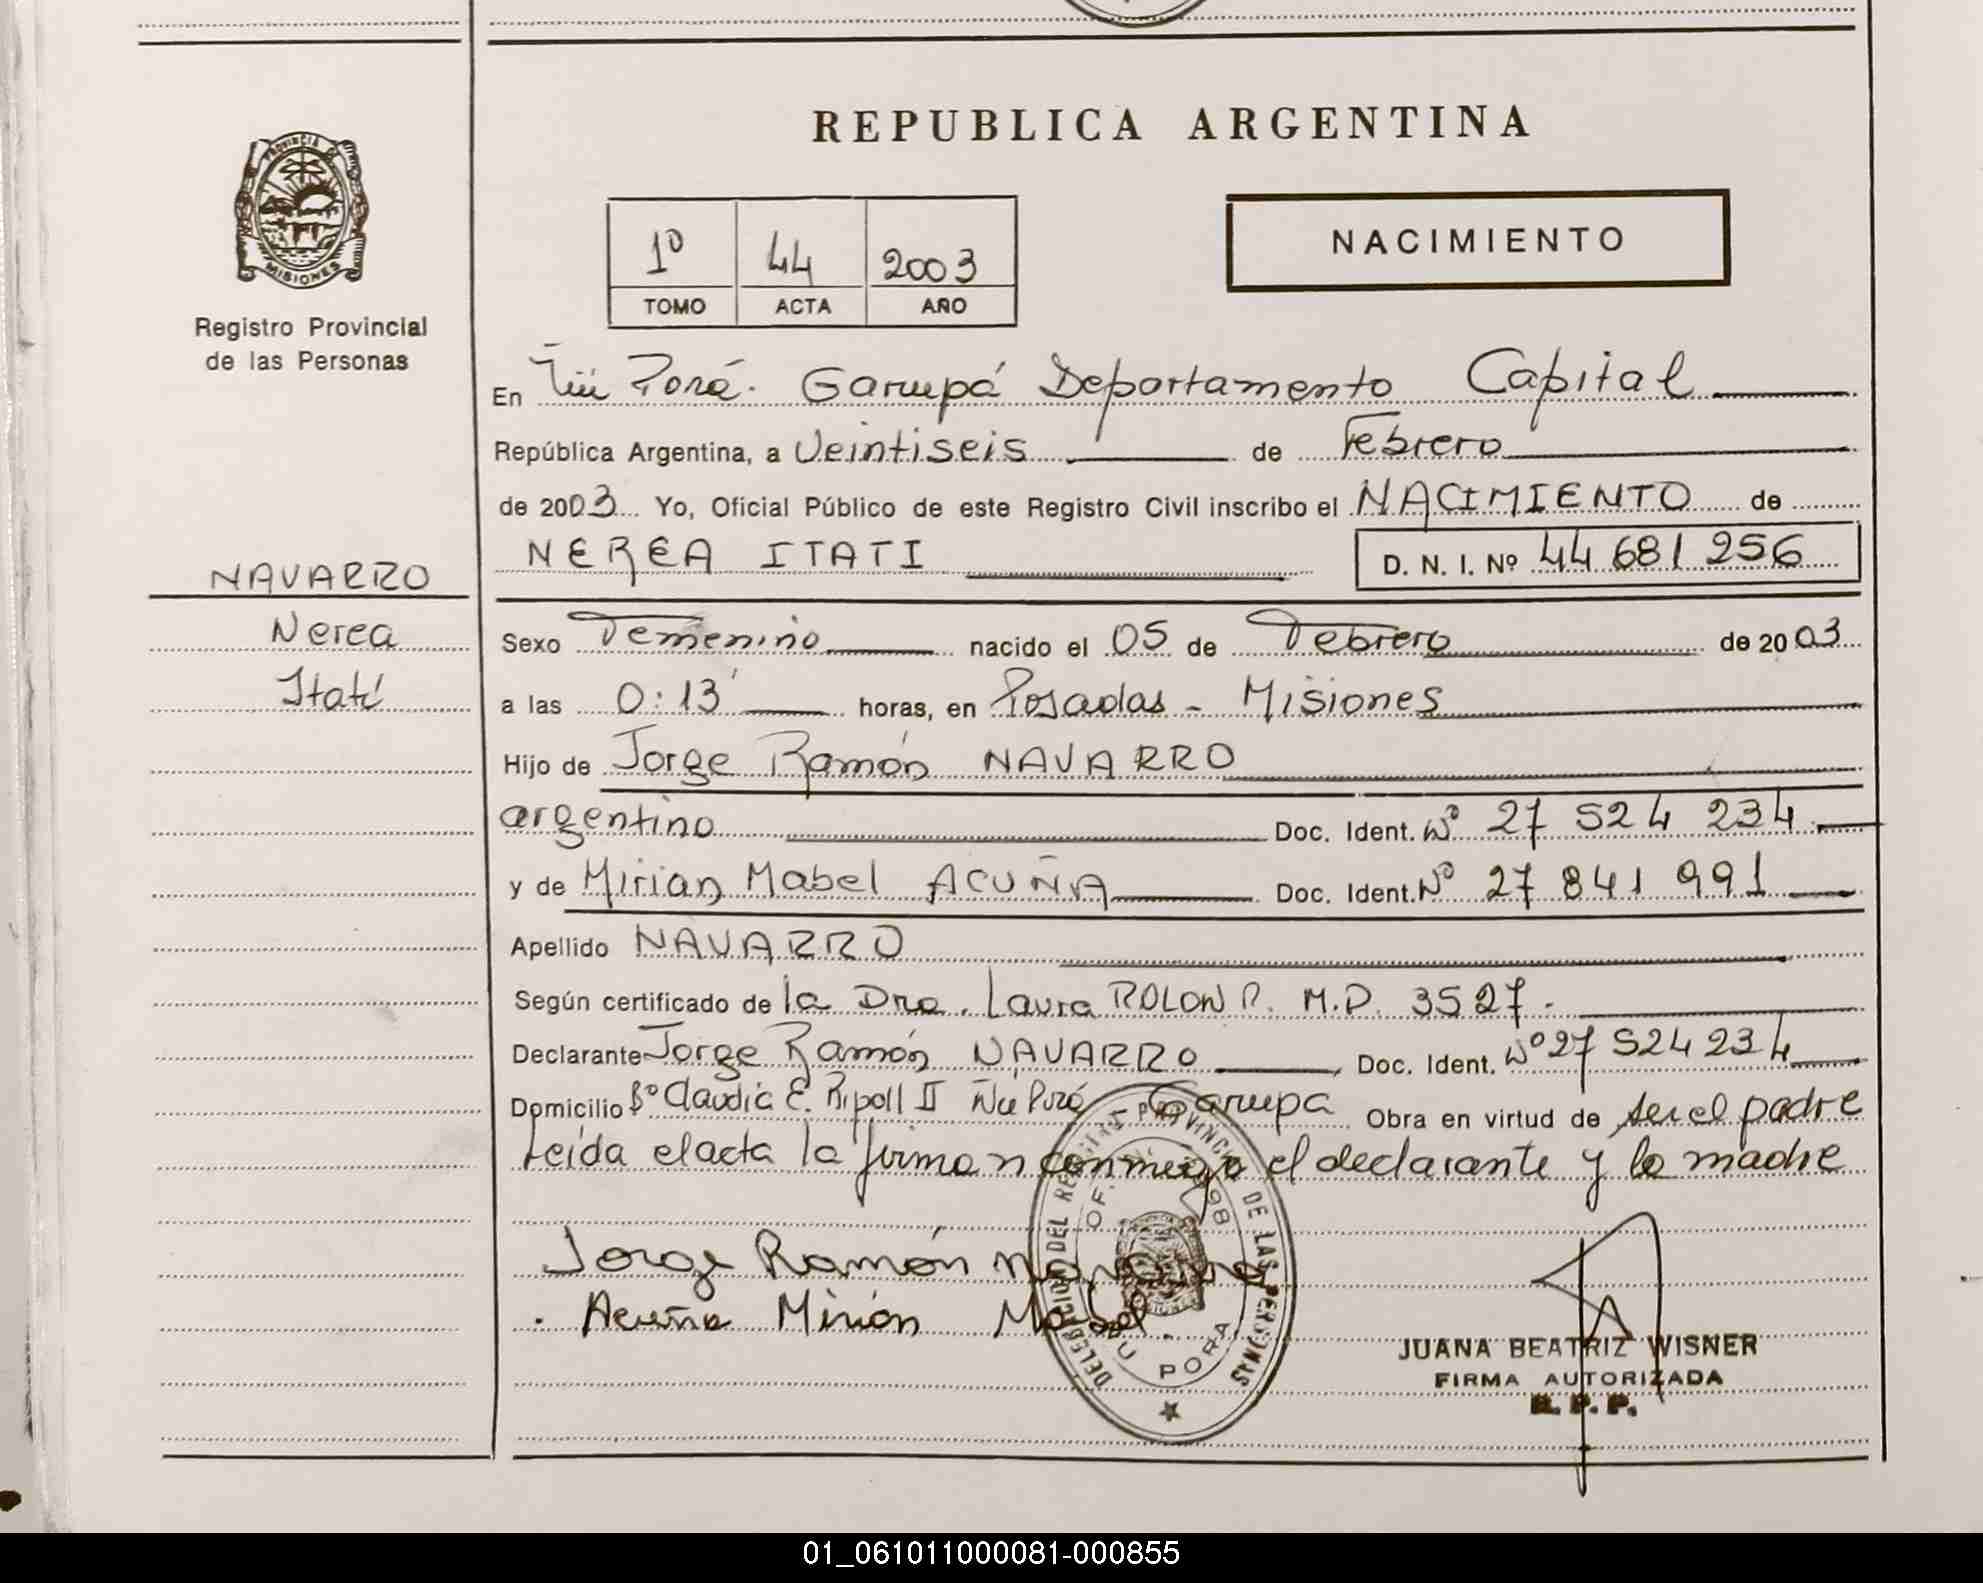 REPUBLICA ARGENTINA
PROVINCIA DE
MISIONES
Registro Provincial
de las Personas
1º 44 2003
TOMO ACTA AÑO
NACIMIENTO
En Ñu Porá. Garupá Departamento Capital
República Argentina, a Veintiseis de Febrero
de 2003 Yo, Oficial Público de este Registro Civil inscribo el NACIMIENTO de
NEREA ITATI D. N. I. Nº 44 681 256
NAVARRO
Nerea
Itatí
Sexo Femenino nacido el 05 de Febrero de 2003
a las 0:13' horas, en Posadas - Misiones
Hijo de Jorge Ramón NAVARRO
argentino Doc. Ident. Nº 27 524 234
y de Mirian Mabel ACUÑA Doc. Ident. Nº 27 841 991
Apellido NAVARRO
Según certificado de la Dra. Laura ROLON P. M.P. 3527.
Declarante Jorge Ramón NAVARRO Doc. Ident. Nº 27 524 234
Domicilio Bº Claudia E. Ripoll II Ñu Porá Garupa Obra en virtud de ser el padre
Leída el acta la firman conmigo el declarante y la madre
Jorge Ramón Navarro
Acuña Mirian Mabel.
DELEGACION DEL REGISTRO PROVINCIAL DE LAS PERSONAS
ÑU PORA
JUANA BEATRIZ WISNER
FIRMA AUTORIZADA
R. P. P.
01_061011000081-000855